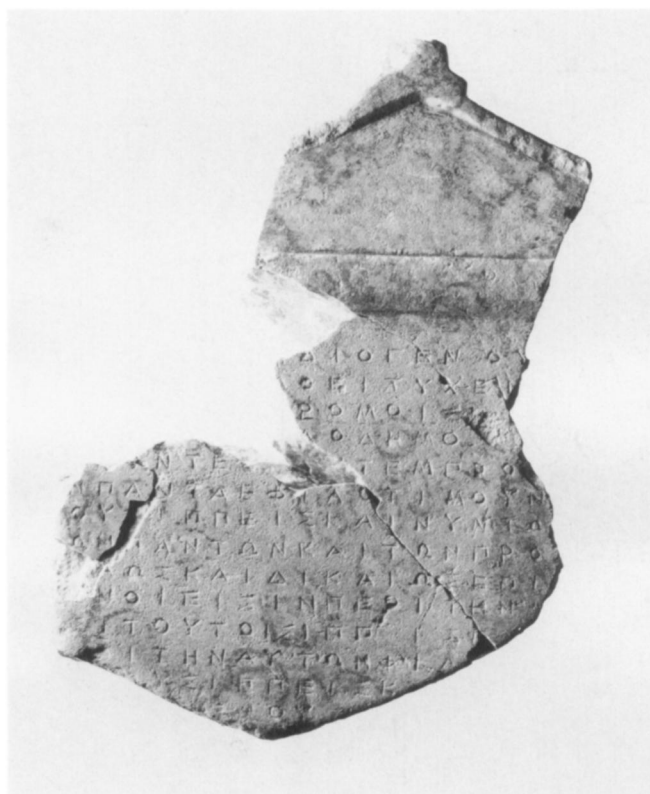 ΔΙΟΓΕΝΟΥ
ΟΕΙΤΥΧΕΙ
ΡΟΜΟΙΣ
ΟΔΗΜΟ
ΑΝΤΕ ΤΕΜΠΡΟ
ΝΠΑΝΤΑΕΦΙΛΟΤΙΜΟΥΝ
ΙΠΠΕΙΣΚΑΙΝΥΜΤΩ
ΑΝΤΩΝΚΑΙΤΩΝΠΡΟ
ΛΩΣΚΑΙΔΙΚΑΙΩΣΕΩΙ
ΙΟΙΕΙΣΙΝΠΕΡΙΤΗΝ
ΤΟΥΤΟΙΣΙΠΠ
ΙΤΗΝΑΥΤΩΝΦΙΛ
ΣΙΠΠΕΥΣΙ